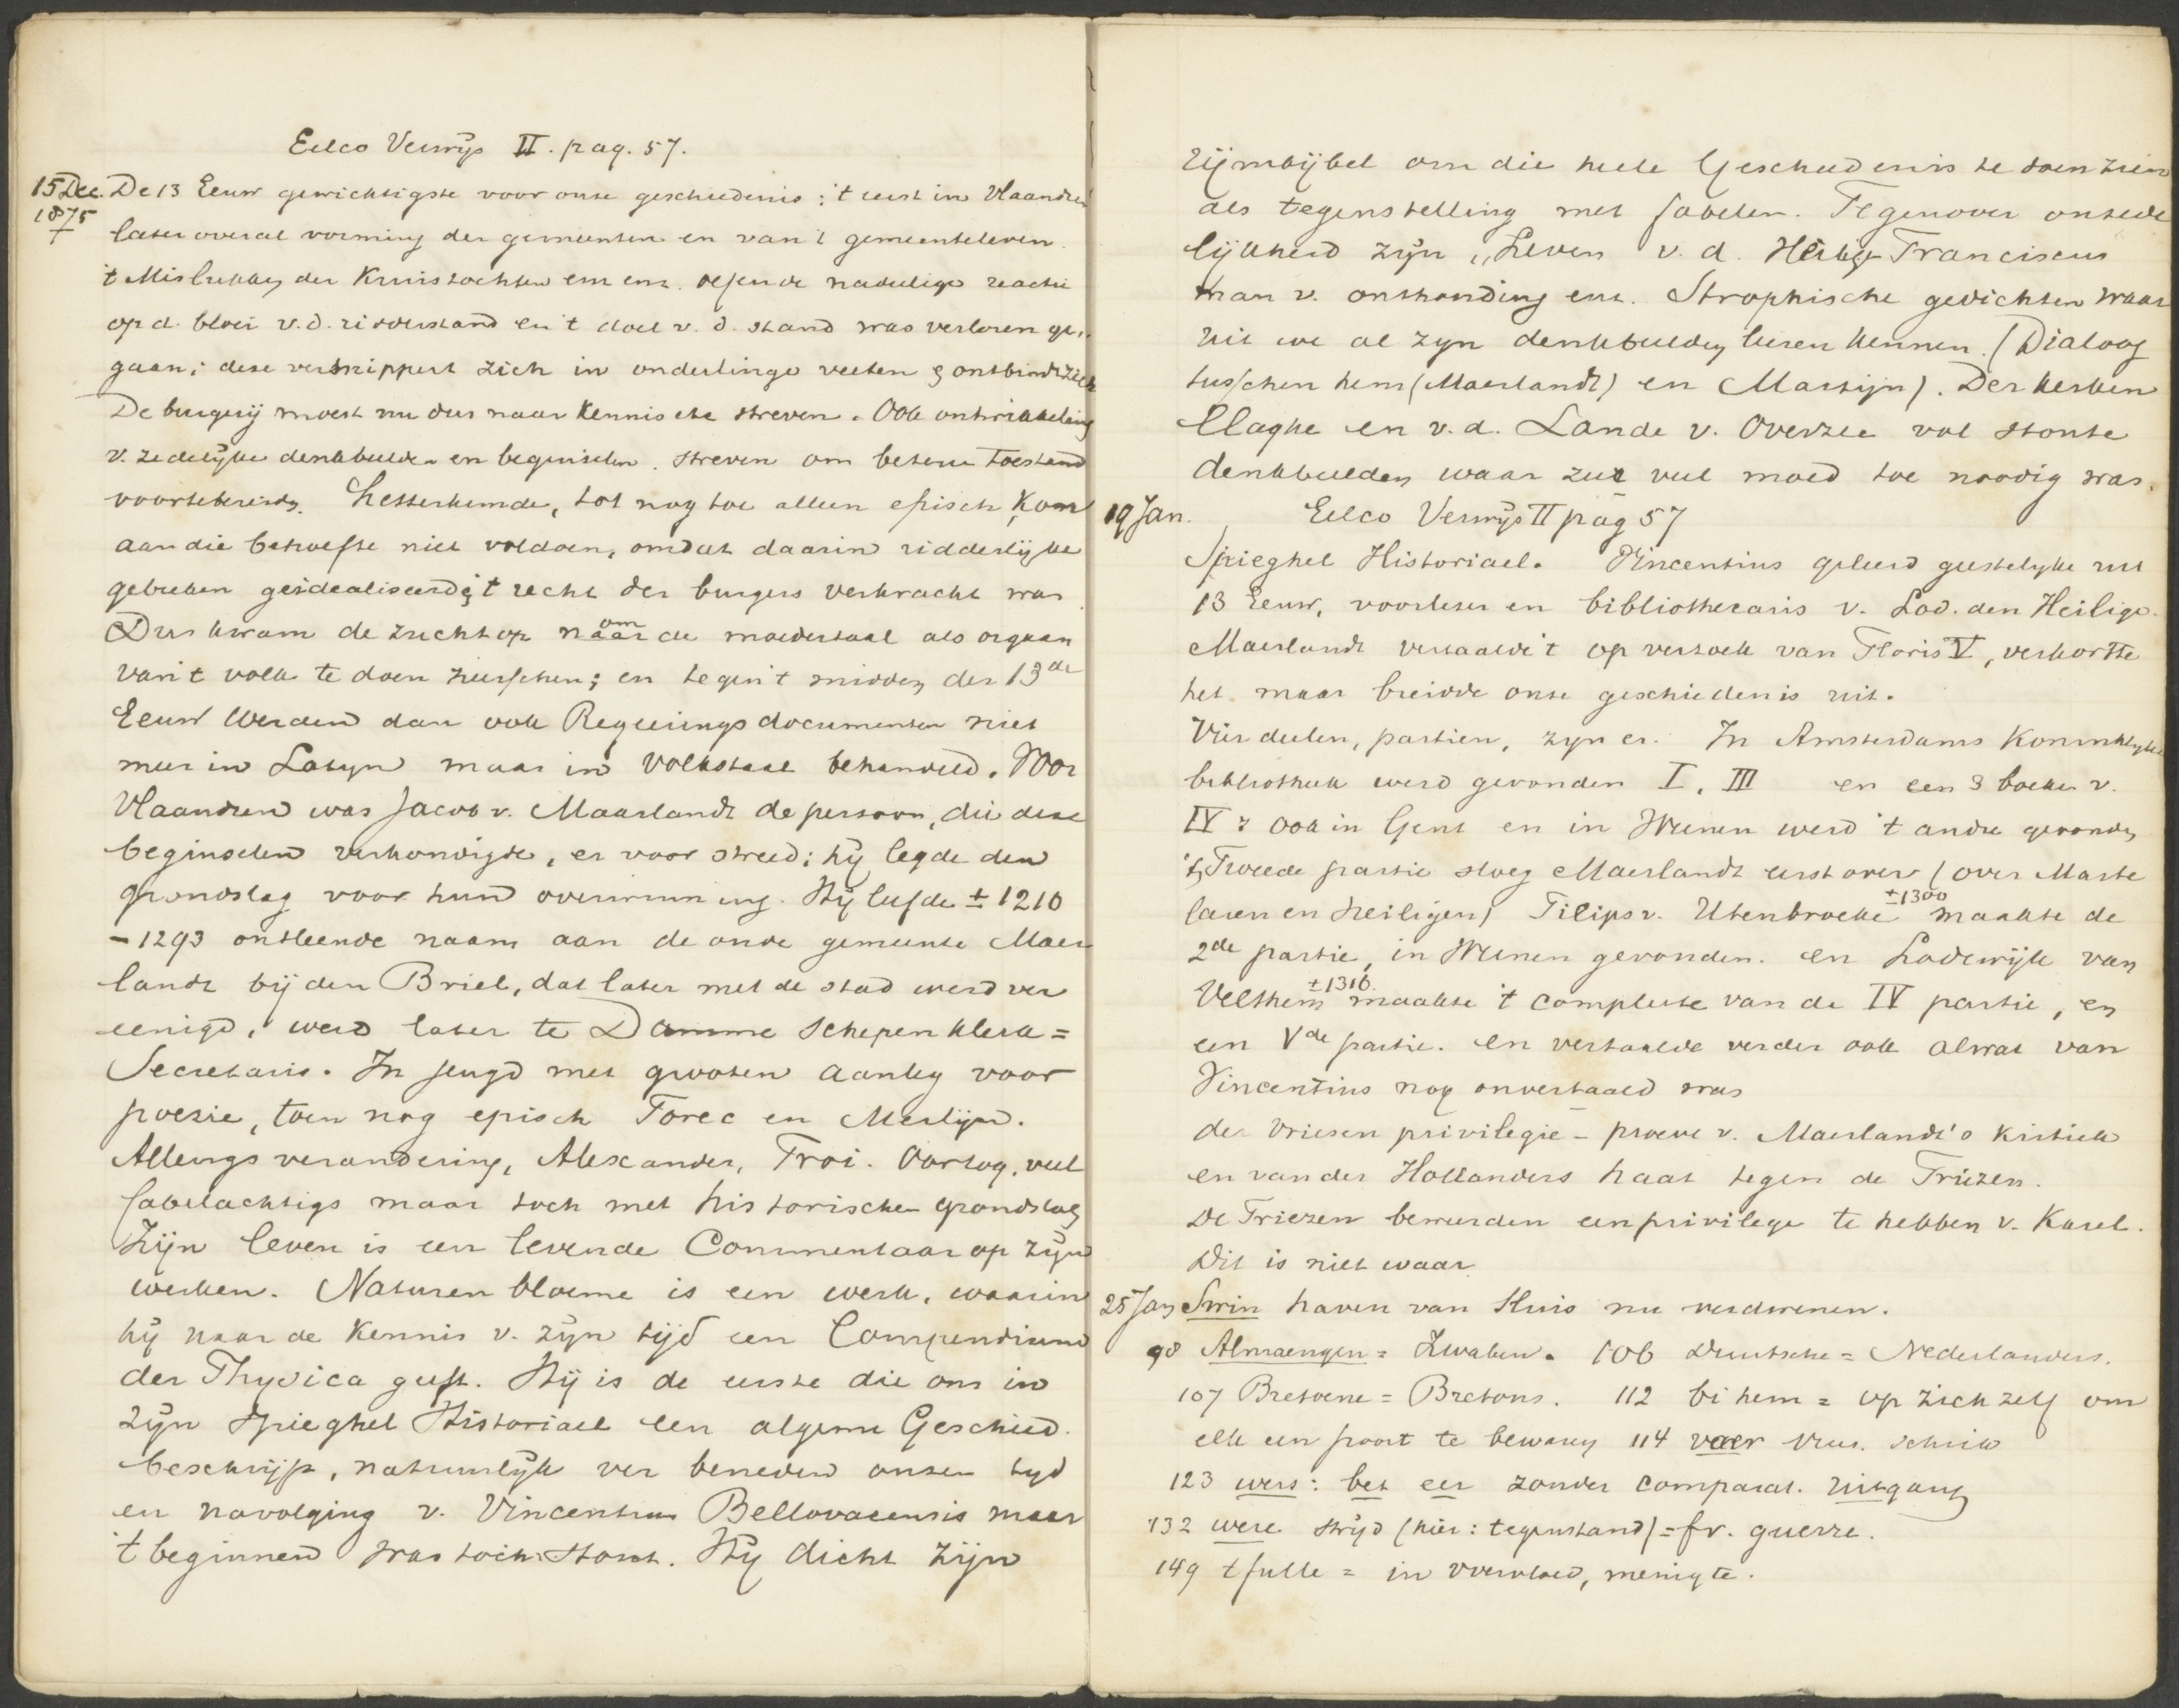 Eelco Verwijs II. pag. 57.
15 Dec. De 13 Eeuw gewichtigste voor onze geschiedenis; 't eerst in Vlaandren
1875 later overal vorming der gemeenten en van 't gemeenteleven.
't Mislukken der Kruistochten enz enz. oefende nadelige reactie
op d. bloei v.d. ridderstand en 't doel v. d. stand was verloren ge-
gaan; deze versnippert zich in onderlinge veeten & ontbindt zich
De burgerij moest nu dus naar Kennis etc streven. Ook ontwikkeling
v. zedelijke denkbeelden en beginselen. streven om beteren toestand
voortebereiden. Letterkunde, tot nog toe alleen episch kon
aan die behoefte niet voldoen, omdat daarin ridderlijke
gebreken geïdealiseerd & 't recht der burgers verkracht was.
Dus kwam de zucht op naar om de moedertaal als orgaan
van 't volk te doen heerschen; en tegen 't midden der 13de
Eeuw werden dan ook Regeerings documenten niet
meer in Latyn maar in volkstaal behandeld. Voor
Vlaandren was Jacob v. Maarlandt de persoon, die deze
beginselen verkondigde, er voor streed; hij legde den
grondslag voor hun overwinning. Hij leefde ± 1210
– 1293 ontleende naam aan de oude gemeente Maer
landt bij den Briel, dat later met de stad werd ver
eenigd, werd later te Damme schepenklerk =
Secretaris. In jeugd met grooten aanleg voor
poezie, toen nog episch Torec en Merlijn.
Allengs verandering, Alexander, Troi. Oorlog, veel
fabelachtigs maar toch met historischen grondslag
Zijn leven is een levende Commentaar op zijn
werken. Naturen bloeme is een werk, waarin
hij naar de kennis v. zijn tijd een Compendium
der Physica geeft. Hij is de eerste die ons in
zijn Spieghel Historiael een algem Geschied.
beschrijft, natuurlijk ver beneden onzen tyd
en navolging v. Vincentius Bellovacensis maar
't beginnen was toch stout. Hij dicht zijn
Rijmbijbel om die heele Geschiedenis te doen zien
als tegenstelling met fabelen. Tegenover onzede
lijkheid zijn „Leven v. d. Heilige Franciscus
man v. onthouding enz. Strophische gedichten waar
uit we al zyn denkbeelden leeren kennen. (Dialoog
tusschen hem (Maerlandt) en Martijn). Der kerken
Claghe en v.d. Lande v. Overzee vol stoute
denkbeelden waar zeer veel moed toe noodig was.
19 Jan. Eelco Verwijs II pag 57
Spieghel Historiael. Vincentius geleerd geestelyke uit
13 Eeuw, voorlezer en bibliothecaris v. Lod. den Heilige.
Maerlandt vertaalde 't op verzoek van Floris V, verkortte
het maar breidde onze geschiedenis uit.
Vier deelen, partien, zyn er. In Amsterdams Koninklyke
bibliotheek werd gevonden I, III en een 3 boeken v.
IV: ook in Gent en in Weenen werd 't andre gevonden
't Tweede partie sloeg Maerlandt eerst over (over Marte
laren en heiligen) Filips v. Utenbroeke ±1300 maakte de
2de partie, in Weenen gevonden. en Lodewijk van
Velthem ±1316. maakte 't compleete van de IV partie, en
een Vde partie. en vertaalde verder ook alwat van
Vincentius nog onvertaald was
der Vriesen privilegie – proeve v. Maerlandt's kritiek
en van der Hollanders haat tegen de Friezen.
De Friezen beweerden een privilege te hebben v. Karel.
Dit is niet waar
25 Jan Swin haven van Sluis nu verdwenen.
98 Almaengen = Zwaben. 106 Duutsche = Nederlanders.
107 Bretoene = Bretons. 112 bi hem = op zich zelf om
elk een poort te bewaren 114 vaer vrees. schrik
123 wers: bet eer zonder comparat. uitgang
132 were strijd (hier: tegenstand) = fr. guerre.
149 tfulle = in overvloed, menigte.